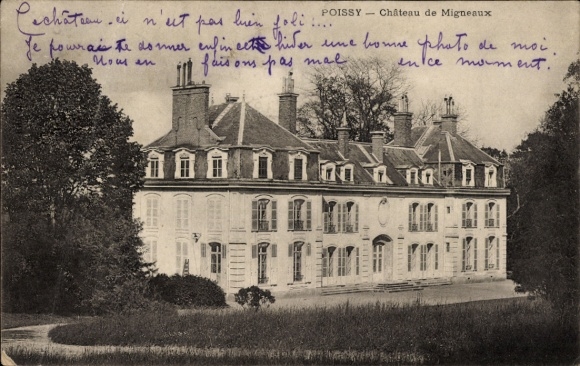 Ce château-ci n'est pas bien joli !...
POISSY — Château de Migneaux
Je pourrai te donner enfin cet hiver une bonne photo de moi.
Nous en faisons pas mal en ce moment.